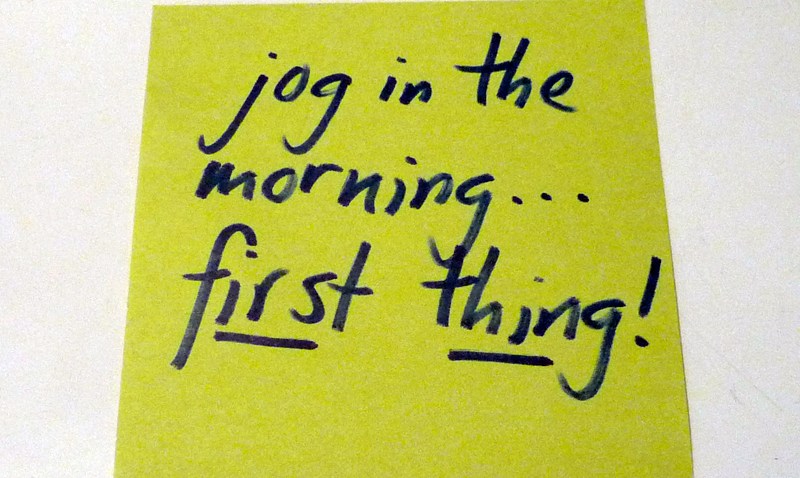 jog in the
morning...
first thing!